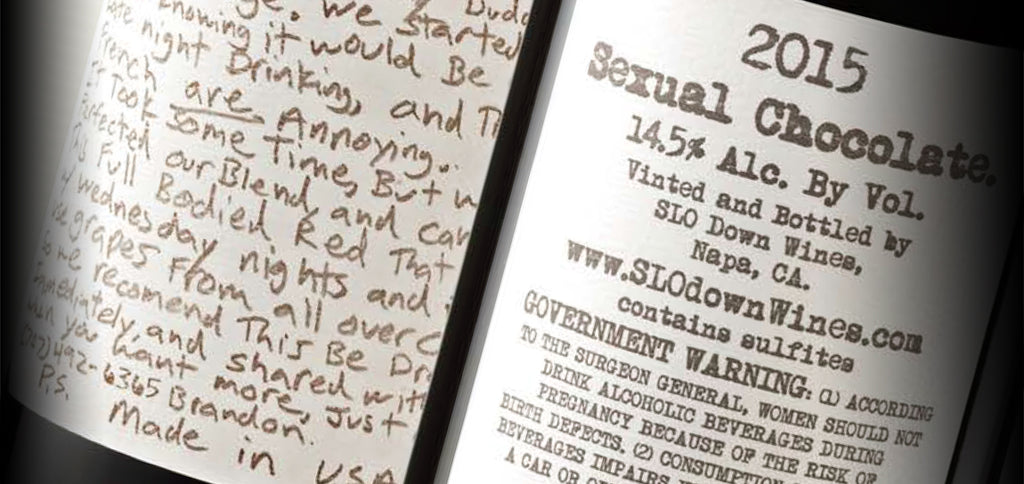 ge. We Started
Knowing it would Be
night Drinking, and Th
French are Annoying.
It Took Some Time, But w
Perfected our Blend, and can
This Full Bodied Red That
w/ wednesday nights and
use grapes From all over c
So we recomend This Be Dr
immediately, and shared with
when you want more, Just
(707) 492-6365 Brandon.
P.S. Made in USA
2015
Sexual Chocolate.
14.5% Alc. By Vol.
Vinted and Bottled by
SLO Down Wines,
Napa, CA.
www.SLOdownWines.com
contains sulfites
GOVERNMENT WARNING: (1) ACCORDING
TO THE SURGEON GENERAL, WOMEN SHOULD NOT
DRINK ALCOHOLIC BEVERAGES DURING
PREGNANCY BECAUSE OF THE RISK OF
BIRTH DEFECTS. (2) CONSUMPTION
BEVERAGES IMPAIRS
A CAR OR